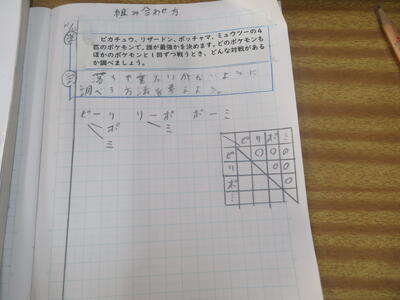 組み合わせ方
ピカチュウ、リザードン、ポッチャマ、ミュウツーの4
匹のポケモンで、誰が最強かを決めます。どのポケモンも
ほかのポケモンと1回ずつ戦うとき、どんな対戦があるか
調べましょう。
落ちや重なりがないように
調べる方法を考えよう。
ピーリ リーポ ポーミ
ポ ミ
ミ
ピ リ ポ ミ
ピ 〇 〇 〇
リ 〇 〇
ポ 〇
ミ